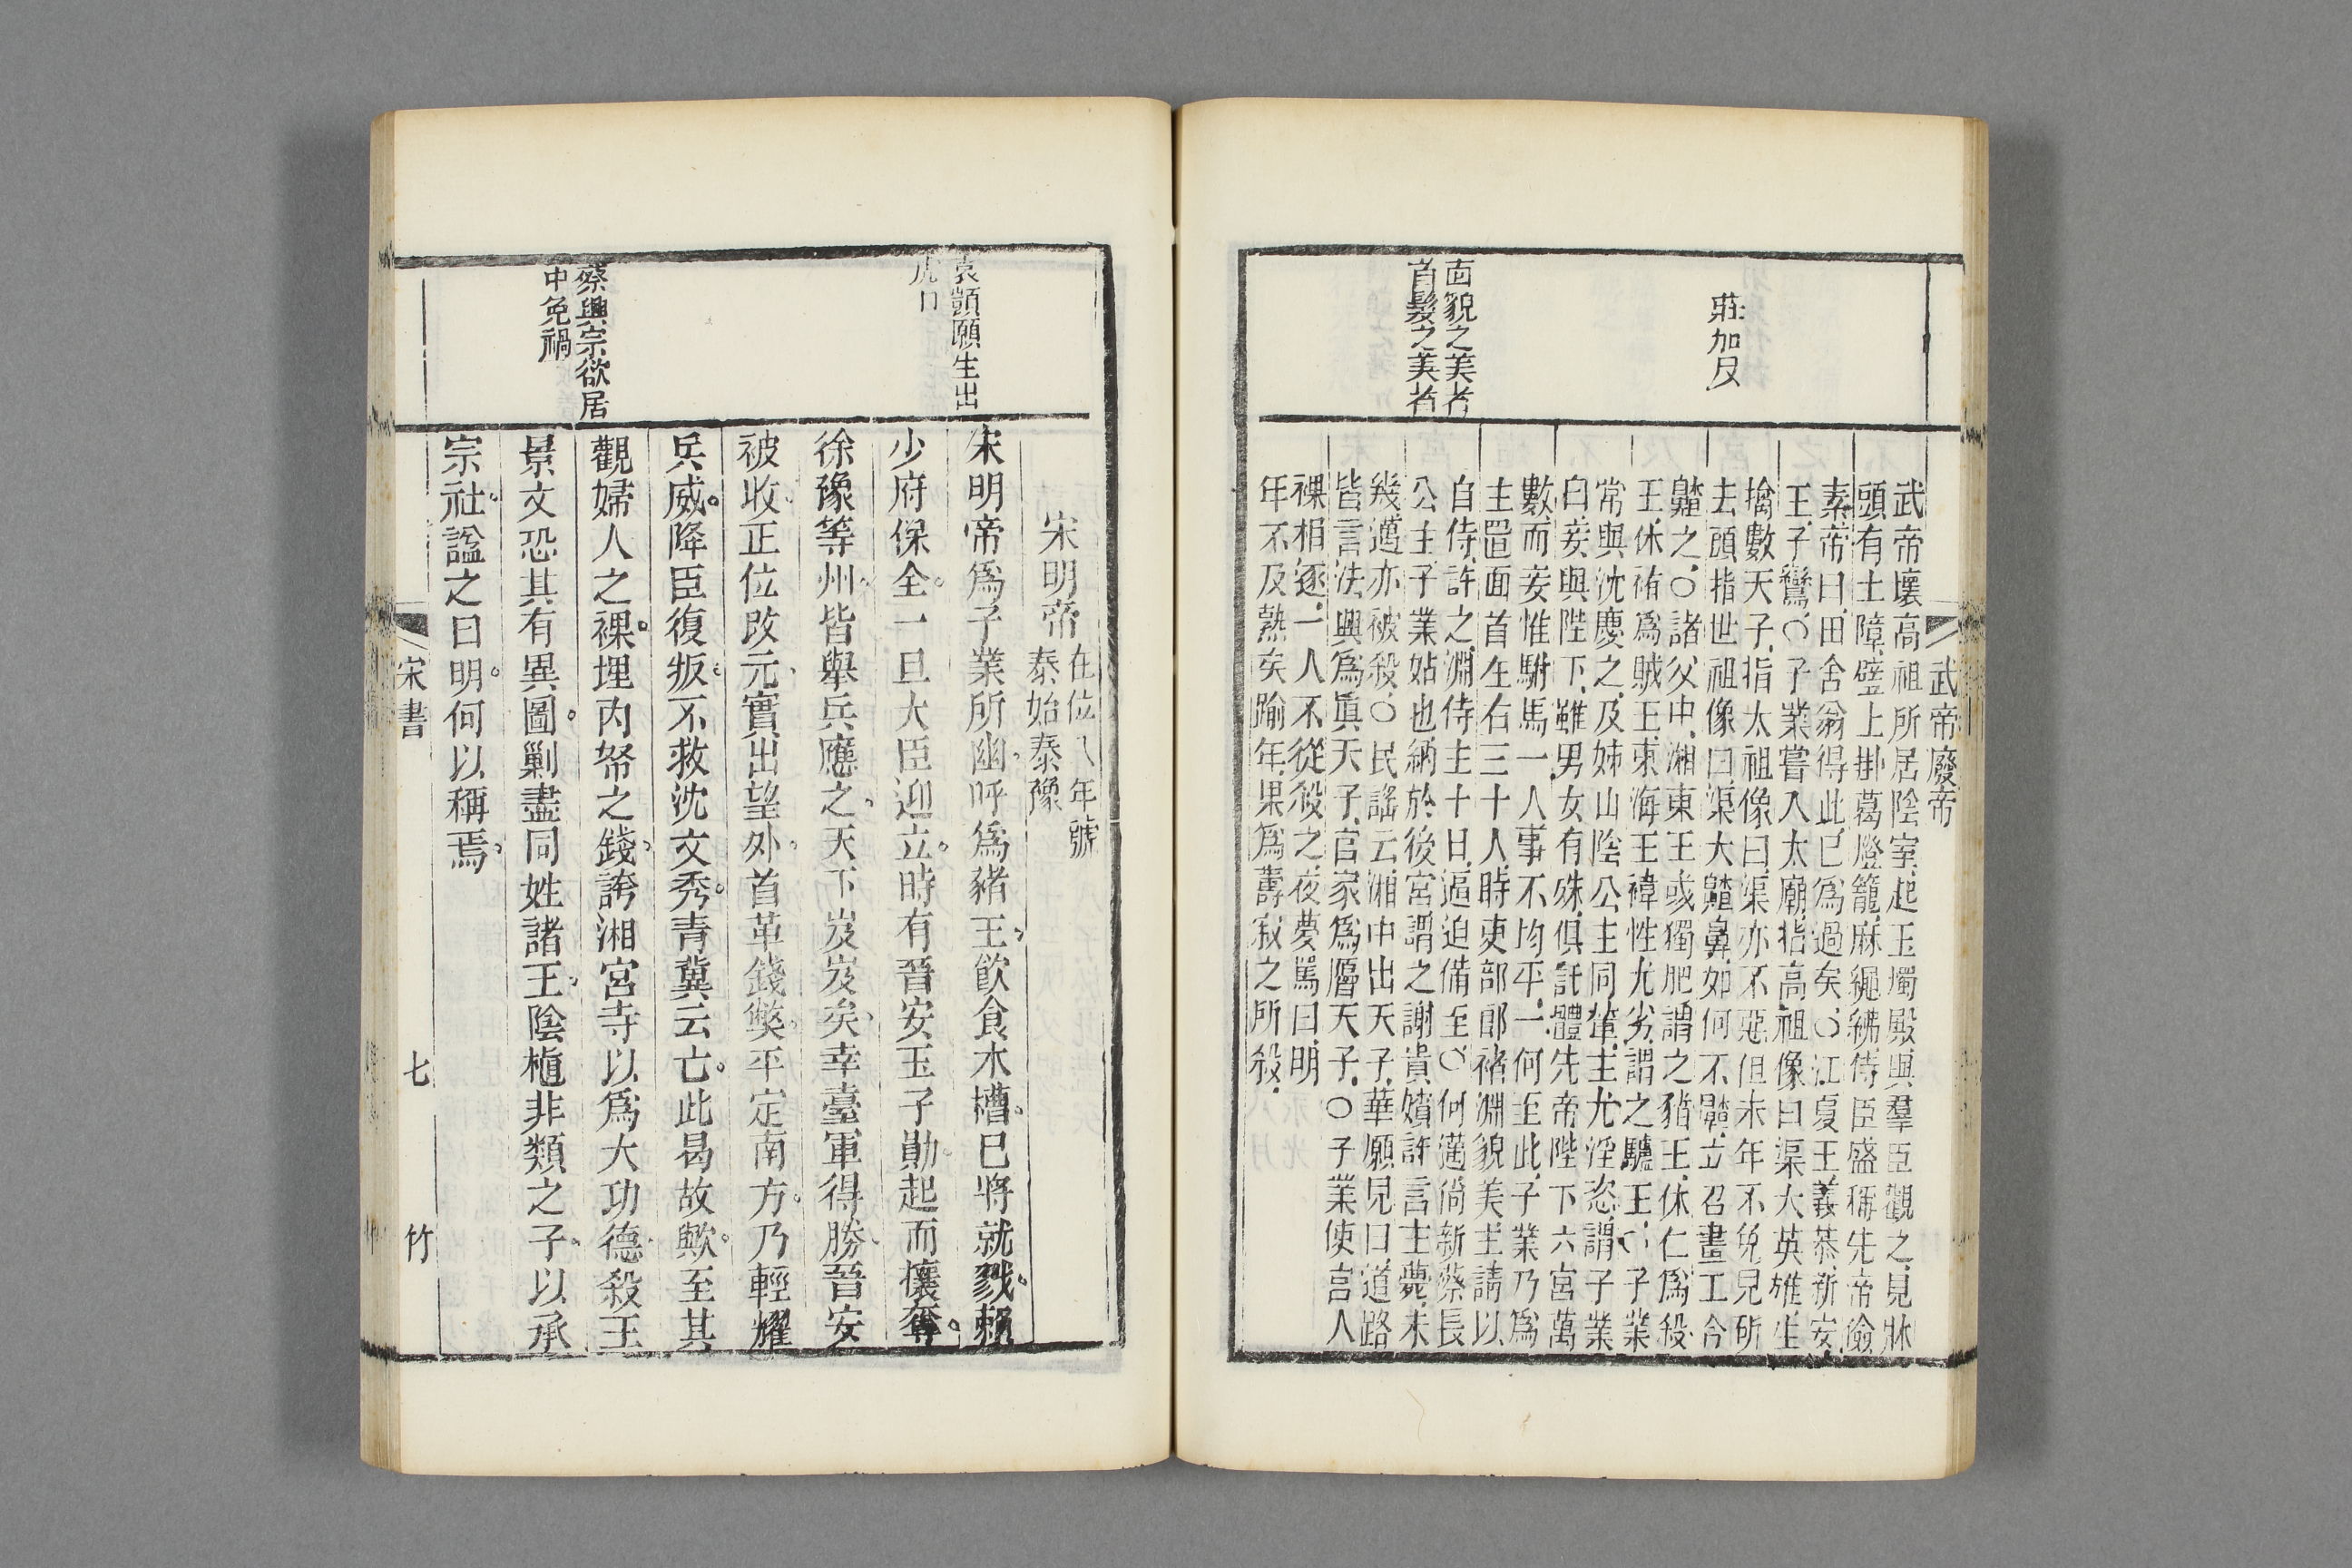 武帝廢帝
莊加反
面貌之美者
首髮之美者
武帝壞高祖所居陰室起玉燭殿與羣臣觀之見牀
頭有土障壁上掛葛燈籠麻繩拂侍臣盛稱先帝儉
素帝曰田舍翁得此已爲過矣○江夏王義恭新安
王子鸞○子業嘗入太廟指高祖像曰渠大英雄生
擒數天子指太祖像曰渠亦不惡但末年不免兒斫
去頭指世祖像曰渠大齄鼻如何不齄立召畫工令
齄之○諸父中湘東王彧獨肥謂之豬王休仁爲殺
王休祐爲賊王東海王禕性尤劣謂之驢王○子業
常與沈慶之及姊山陰公主同輦主尤淫恣謂子業
曰妾與陛下雖男女有殊俱託體先帝陛下六宮萬
數而妾惟駙馬一人事不均平一何至此子業乃爲
主置面首左右三十人時吏部郎褚淵貌美主請以
自侍許之淵侍主十日逼迫備至○何邁尚新蔡長
公主子業姑也納於後宮謂之謝貴嬪詐言主薨未
幾邁亦被殺○民謠云湘中出天子華願兒曰道路
皆言法興爲眞天子官家爲贋天子○子業使宮人
裸相逐一人不從殺之夜夢罵曰明
年不及熟矣踰年果爲壽寂之所殺
袁顗願生出
虎口
蔡興宗欲居
中免禍
宋明帝在位八年號
泰始泰豫
宋明帝爲子業所幽呼爲豬王飮食木槽已將就戮賴
少府保全一旦大臣迎立時有晉安王子勛起而攘奪
徐豫等州皆舉兵應之天下岌岌矣幸臺軍得勝晉安
被收正位改元實出望外首革錢獘平定南方乃輕耀
兵威降臣復叛不救沈文秀青冀云亡此曷故歟至其
觀婦人之裸埋內帑之錢誇湘宮寺以爲大功德殺王
景文恐其有異圖剿盡同姓諸王陰植非類之子以承
宗社諡之曰明何以稱焉
宋書
七
竹